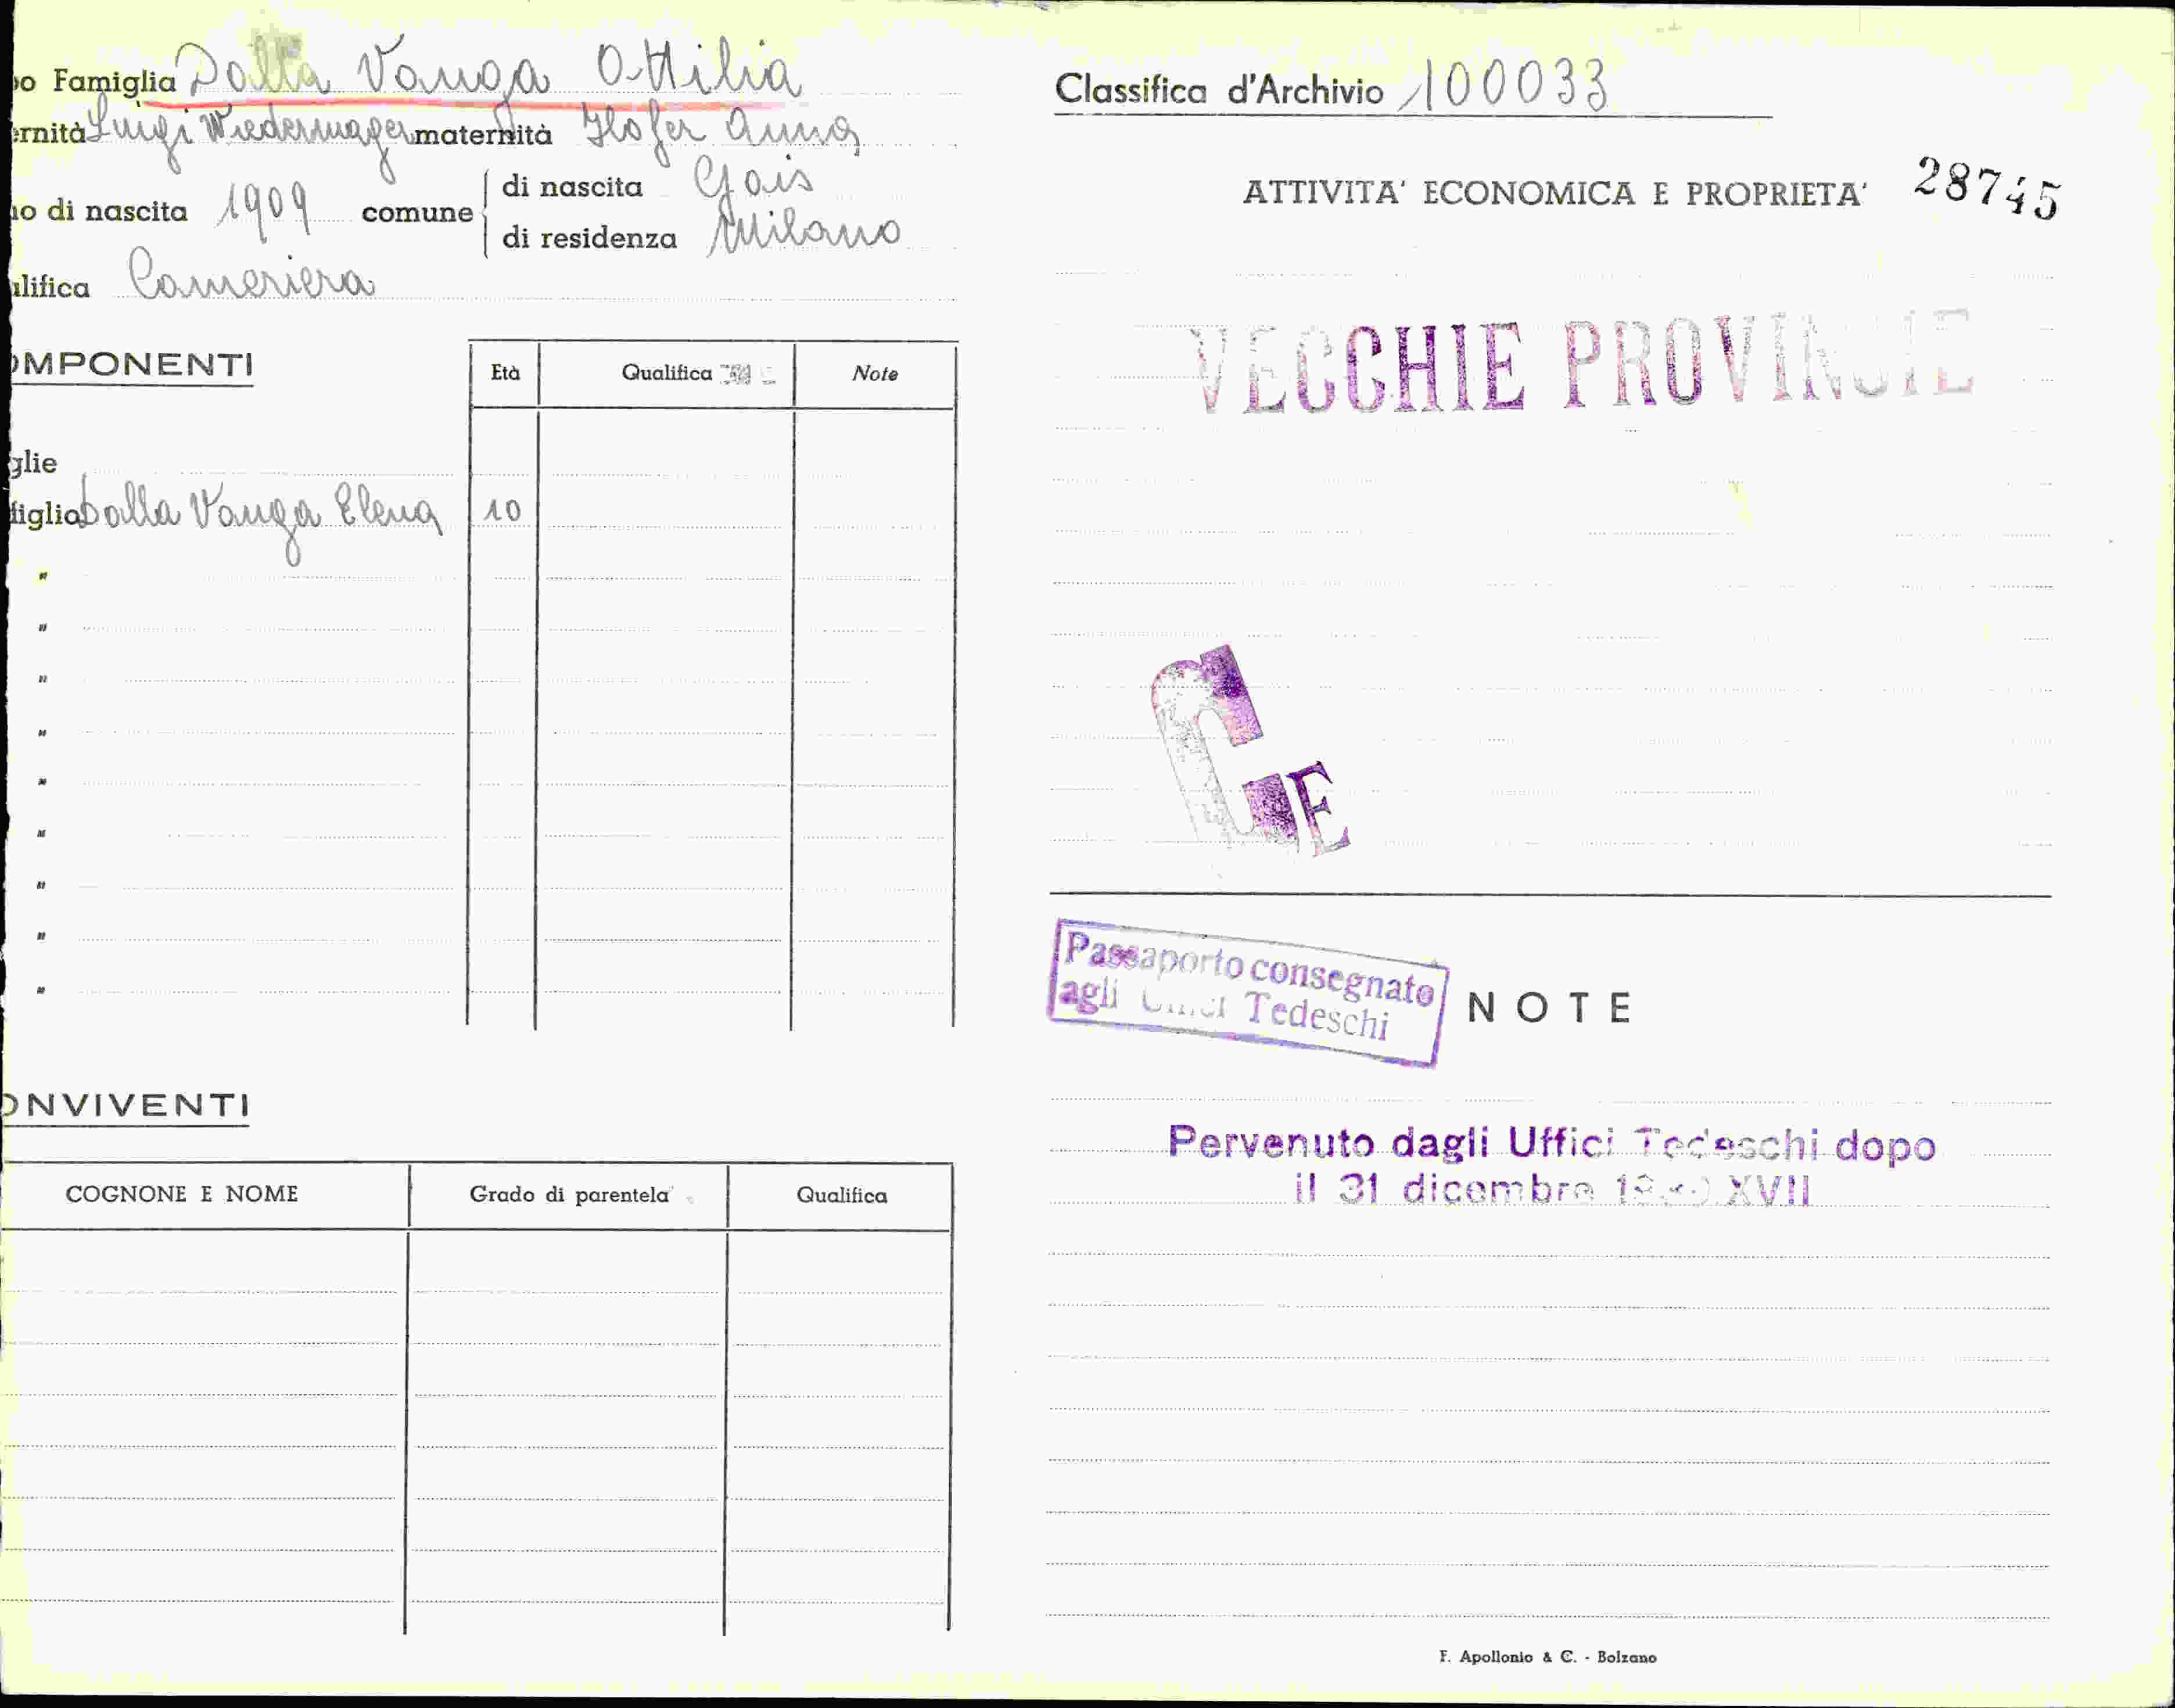 o Famiglia Dalla Vanga Ottilia
ernità Luigi Wiedermager maternità Hofer Anna
o di nascita 1909 comune di nascita Gais
di residenza Milano
lifica Cameriera
OMPONENTI
Età Qualifica Note
glie
figlio Dalla Vanga Elena 10
"
"
"
"
"
"
"
"
"
ONVIVENTI
COGNONE E NOME Grado di parentela Qualifica
Classifica d'Archivio 100033
ATTIVITA' ECONOMICA E PROPRIETA' 28745
VECCHIE PROVINCIE
C E
Passaporto consegnato
agli Uffici Tedeschi
NOTE
Pervenuto dagli Uffici Tedeschi dopo
il 31 dicembre XVII
F. Apollonio & C. - Bolzano